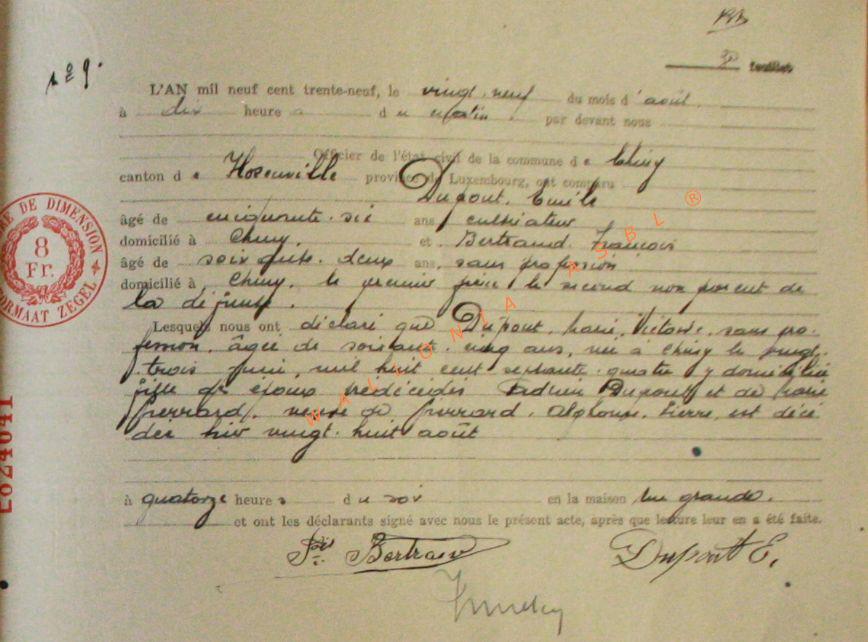 n° 9.
feuillet
L'AN mil neuf cent trente-neuf, le vingt-neuf du mois d'août.
à dix heures du matin par devant nous
Officier de l'état civil de la commune de Chiny
canton de province de Luxembourg, ont comparu
Dupont, Emile
âgé de cinquante-six ans, cultivateur
domicilié à Chiny, et Bertrand, François
âgé de soixante-deux ans, sans profession
domicilié à Chiny, le premier frère le second non parent de
la défunte.
Lesquels nous ont déclaré que Dupont, Marie, Victoire, sans pro-
fession, âgée de soixante-cinq ans, née à Chiny le vingt-
trois juin, mil huit cent septante-quatre y domiciliée
fille des époux prédécédés Dupont et de Marie
Pierrard, veuve de Pierrard, Alphonse, Pierre, est décé
dée hier vingt-huit août
à quatorze heures du soir en la maison rue grande.
et ont les déclarants signé avec nous le présent acte, après que lecture leur en a été faite.
Fçois Bertrand Dupont E.
RE DE DIMENSION
8
Fr.
ORMAAT ZEGEL
WALLONIA ASBL ®